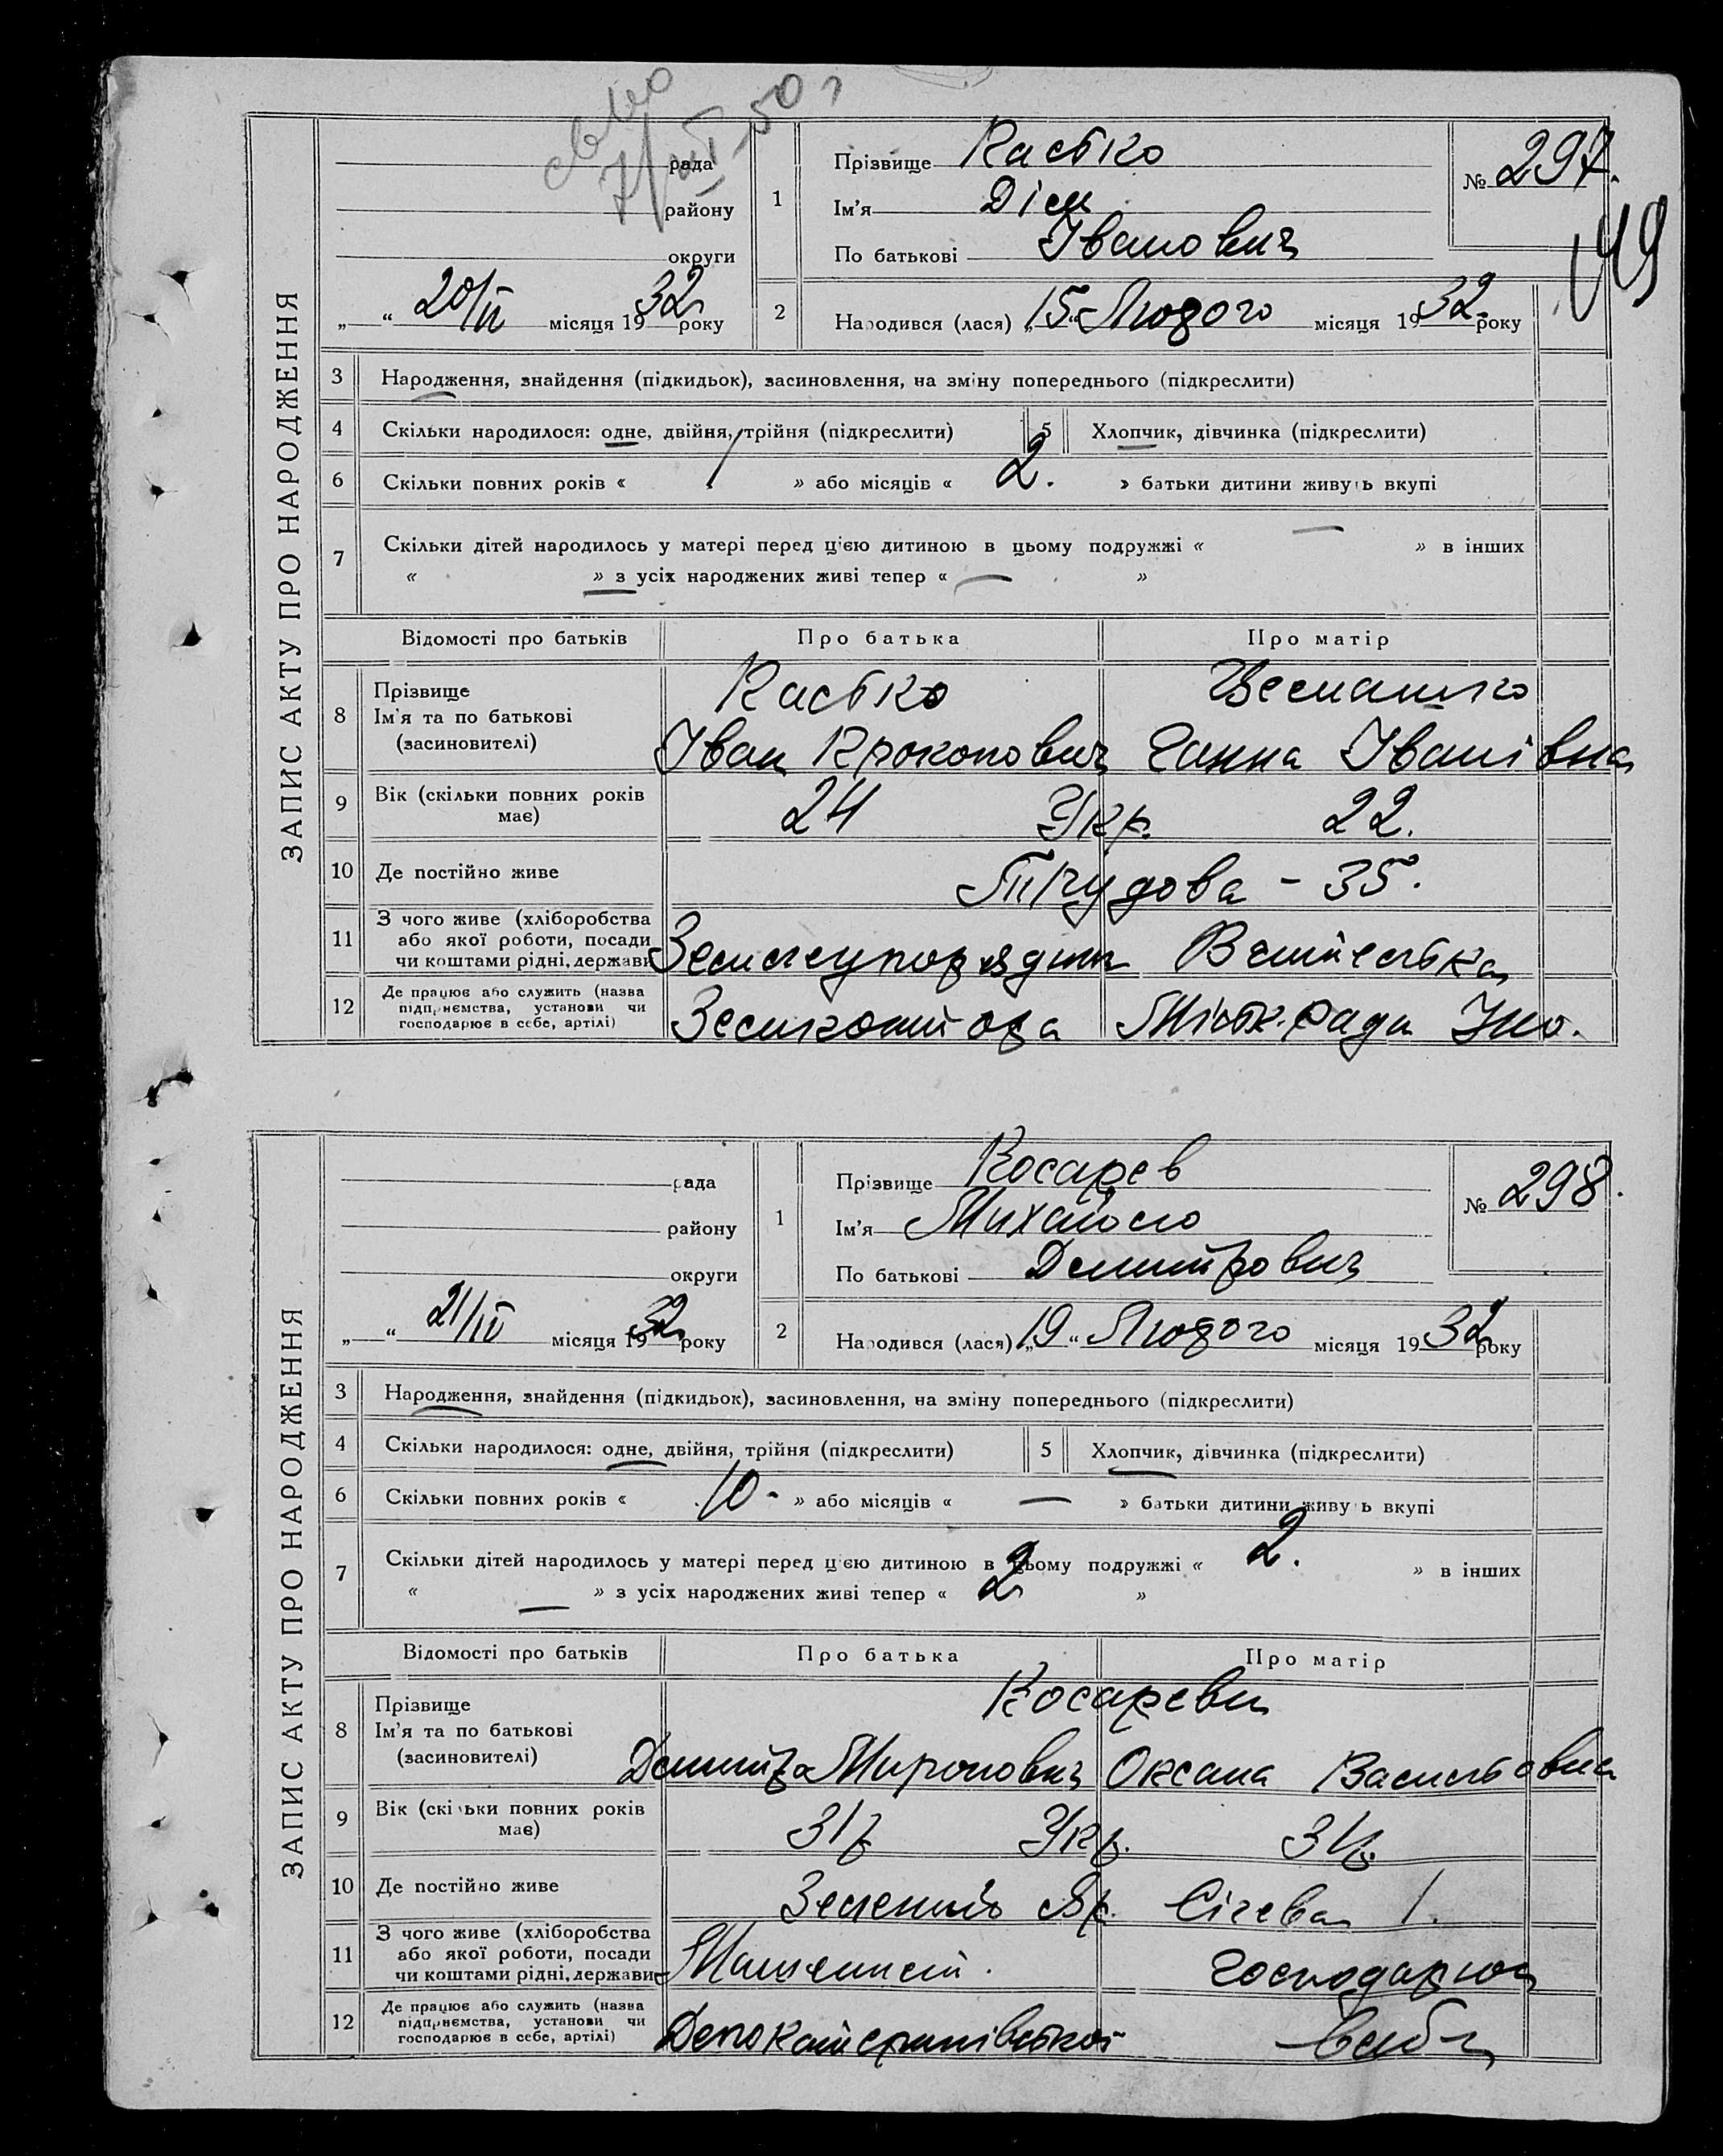 7/VIII-50 г
ЗАПИС АКТУ ПРО НАРОДЖЕННЯ
рада
району
округи
„ “ 20/II місяця 1932 року
1
Прізвище Касько
Ім'я Дім
По батькові Іванович
№ 297.
149
2
Народився (лася) „15“ Лютого місяця 1932 року
3 Народження, знайдення (підкидьок), засиновлення, на зміну попереднього (підкреслити)
4 Скільки народилося: одне, двійня, трійня (підкреслити)
5 Хлопчик, дівчинка (підкреслити)
6 Скільки повних років « / » або місяців « 2. » батьки дитини живуть вкупі
7 Скільки дітей народилось у матері перед цією дитиною в цьому подружжі « — » в інших
« » з усіх народжених живі тепер « — »
Відомості про батьків Про батька Про матір
8 Прізвище
Ім'я та по батькові
(засновителі)
Касько
Іван Прокопович Ганна Іванівна
9 Вік (скільки повних років має) 24 Укр. 22.
10 Де постійно живе Трудова - 35.
11 З чого живе (хліборобства
або якої роботи, посади
чи коштами рідні, держави
12 Де працює або служить (назва
підприємства, установи чи
господарює в себе, артілі)
Міськ. рада
ЗАПИС АКТУ ПРО НАРОДЖЕННЯ
рада
району
округи
„ “ 21/II місяця 1932 року
1
Прізвище Косарев
Ім'я Михайло
По батькові Дмитрович
№ 298.
2
Народився (лася) „19“ Лютого місяця 1932 року
3 Народження, знайдення (підкидьок), засиновлення, на зміну попереднього (підкреслити)
4 Скільки народилося: одне, двійня, трійня (підкреслити)
5 Хлопчик, дівчинка (підкреслити)
6 Скільки повних років « 10 - » або місяців « — » батьки дитини живуть вкупі
7 Скільки дітей народилось у матері перед цією дитиною в цьому подружжі « 2. » в інших
« — » з усіх народжених живі тепер « 2 »
Відомості про батьків Про батька Про матір
8 Прізвище
Ім'я та по батькові
(засиновителі)
Косареви
Дмитро Миронович Оксана Васильовна
9 Вік (скільки повних років має) 31 р Укр. 31 р.
10 Де постійно живе Зелений Яр. Січева 1.
11 З чого живе (хліборобства
або якої роботи, посади
чи коштами рідні, держави
Машиніст. господарює
12 Де працює або служить (назва
підприємства, установи чи
господарює в себе, артілі)
Депо